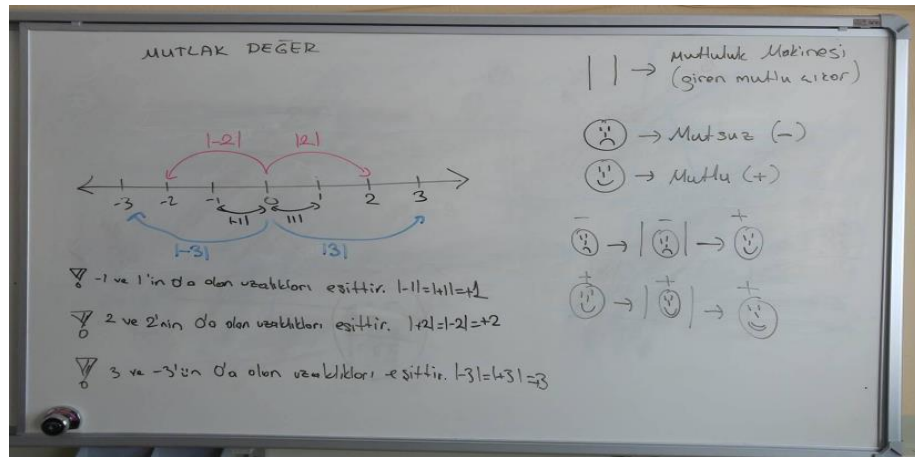 MUTLAK DEĞER
|-2| |2|
-3 -2 -1 0 1 2 3
|-1| |1|
|-3| |3|
-1 ve 1'in 0'a olan uzaklıkları eşittir. |-1|=|+1|=+1
2 ve 2'nin 0'a olan uzaklıkları eşittir. |+2|=|-2|=+2
3 ve -3'ün 0'a olan uzaklıkları eşittir. |-3|=|+3|=+3
| | → Mutluluk Makinesi
(giren mutlu çıkar)
→ Mutsuz (-)
→ Mutlu (+)
- - +
→ | | →
+ + +
→ | | →